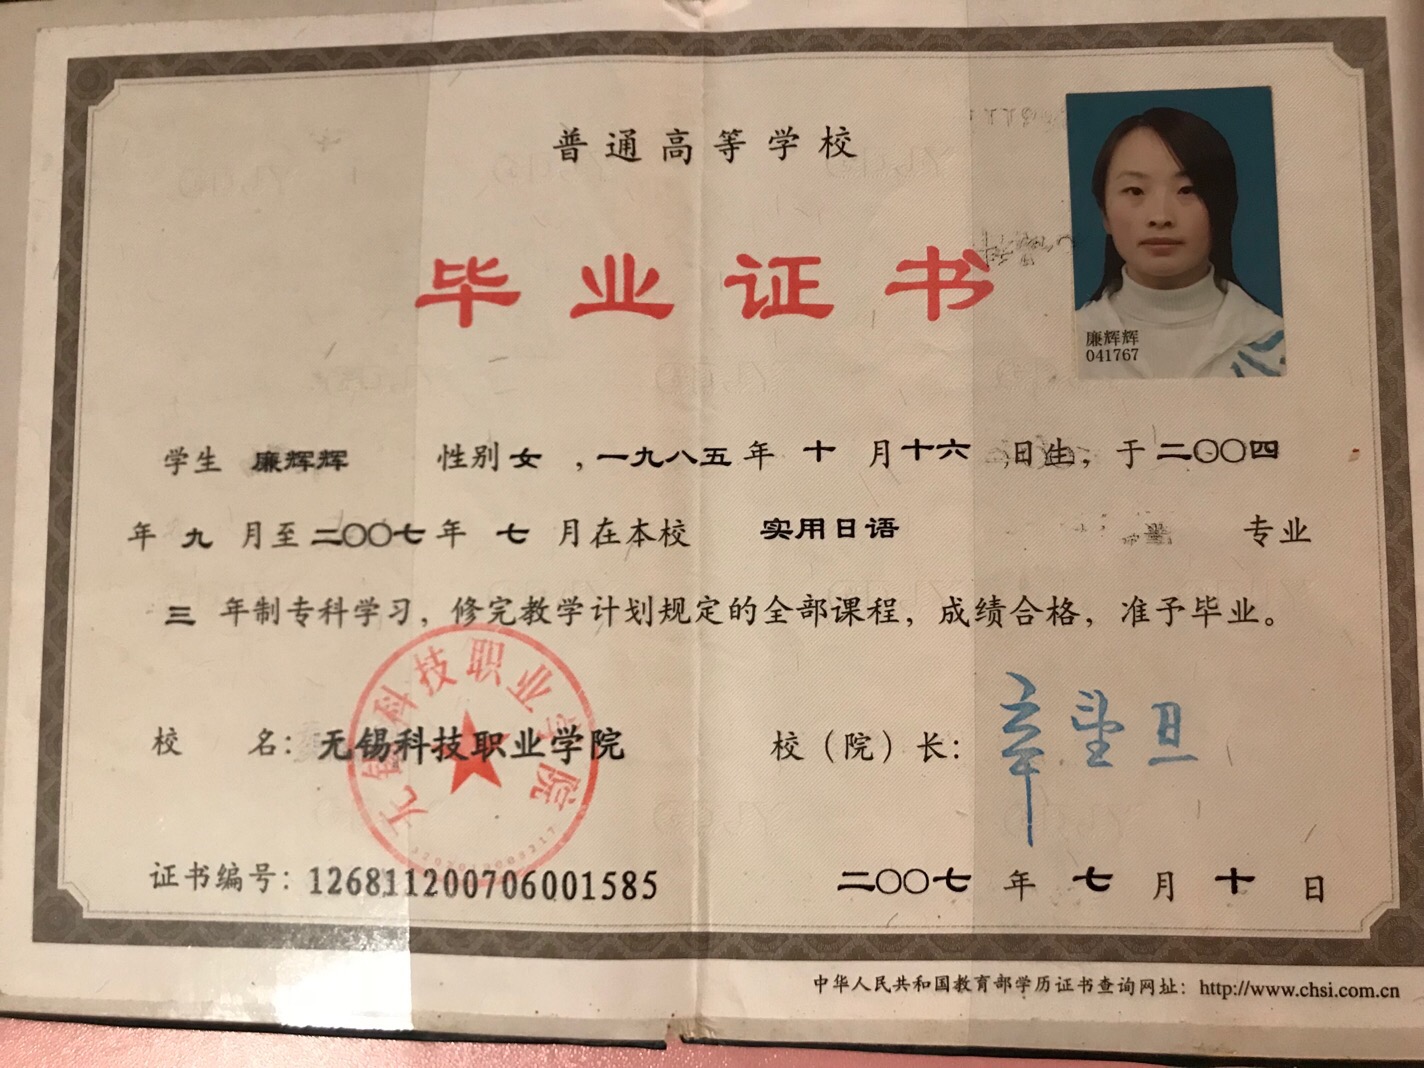 普通高等学校
毕业证书
廉辉辉
041767
学生 廉辉辉 性别 女 ，一九八五 年 十 月 十六 日生，于 二〇〇四
年 九 月至 二〇〇七 年 七 月在本校 实用日语 专业
三 年制专科学习，修完教学计划规定的全部课程，成绩合格，准予毕业。
无锡科技职业学院
校 名：无锡科技职业学院 校（院）长：
证书编号：126811200706001585 二〇〇七 年 七 月 十 日
中华人民共和国教育部学历证书查询网址：http://www.chsi.com.cn